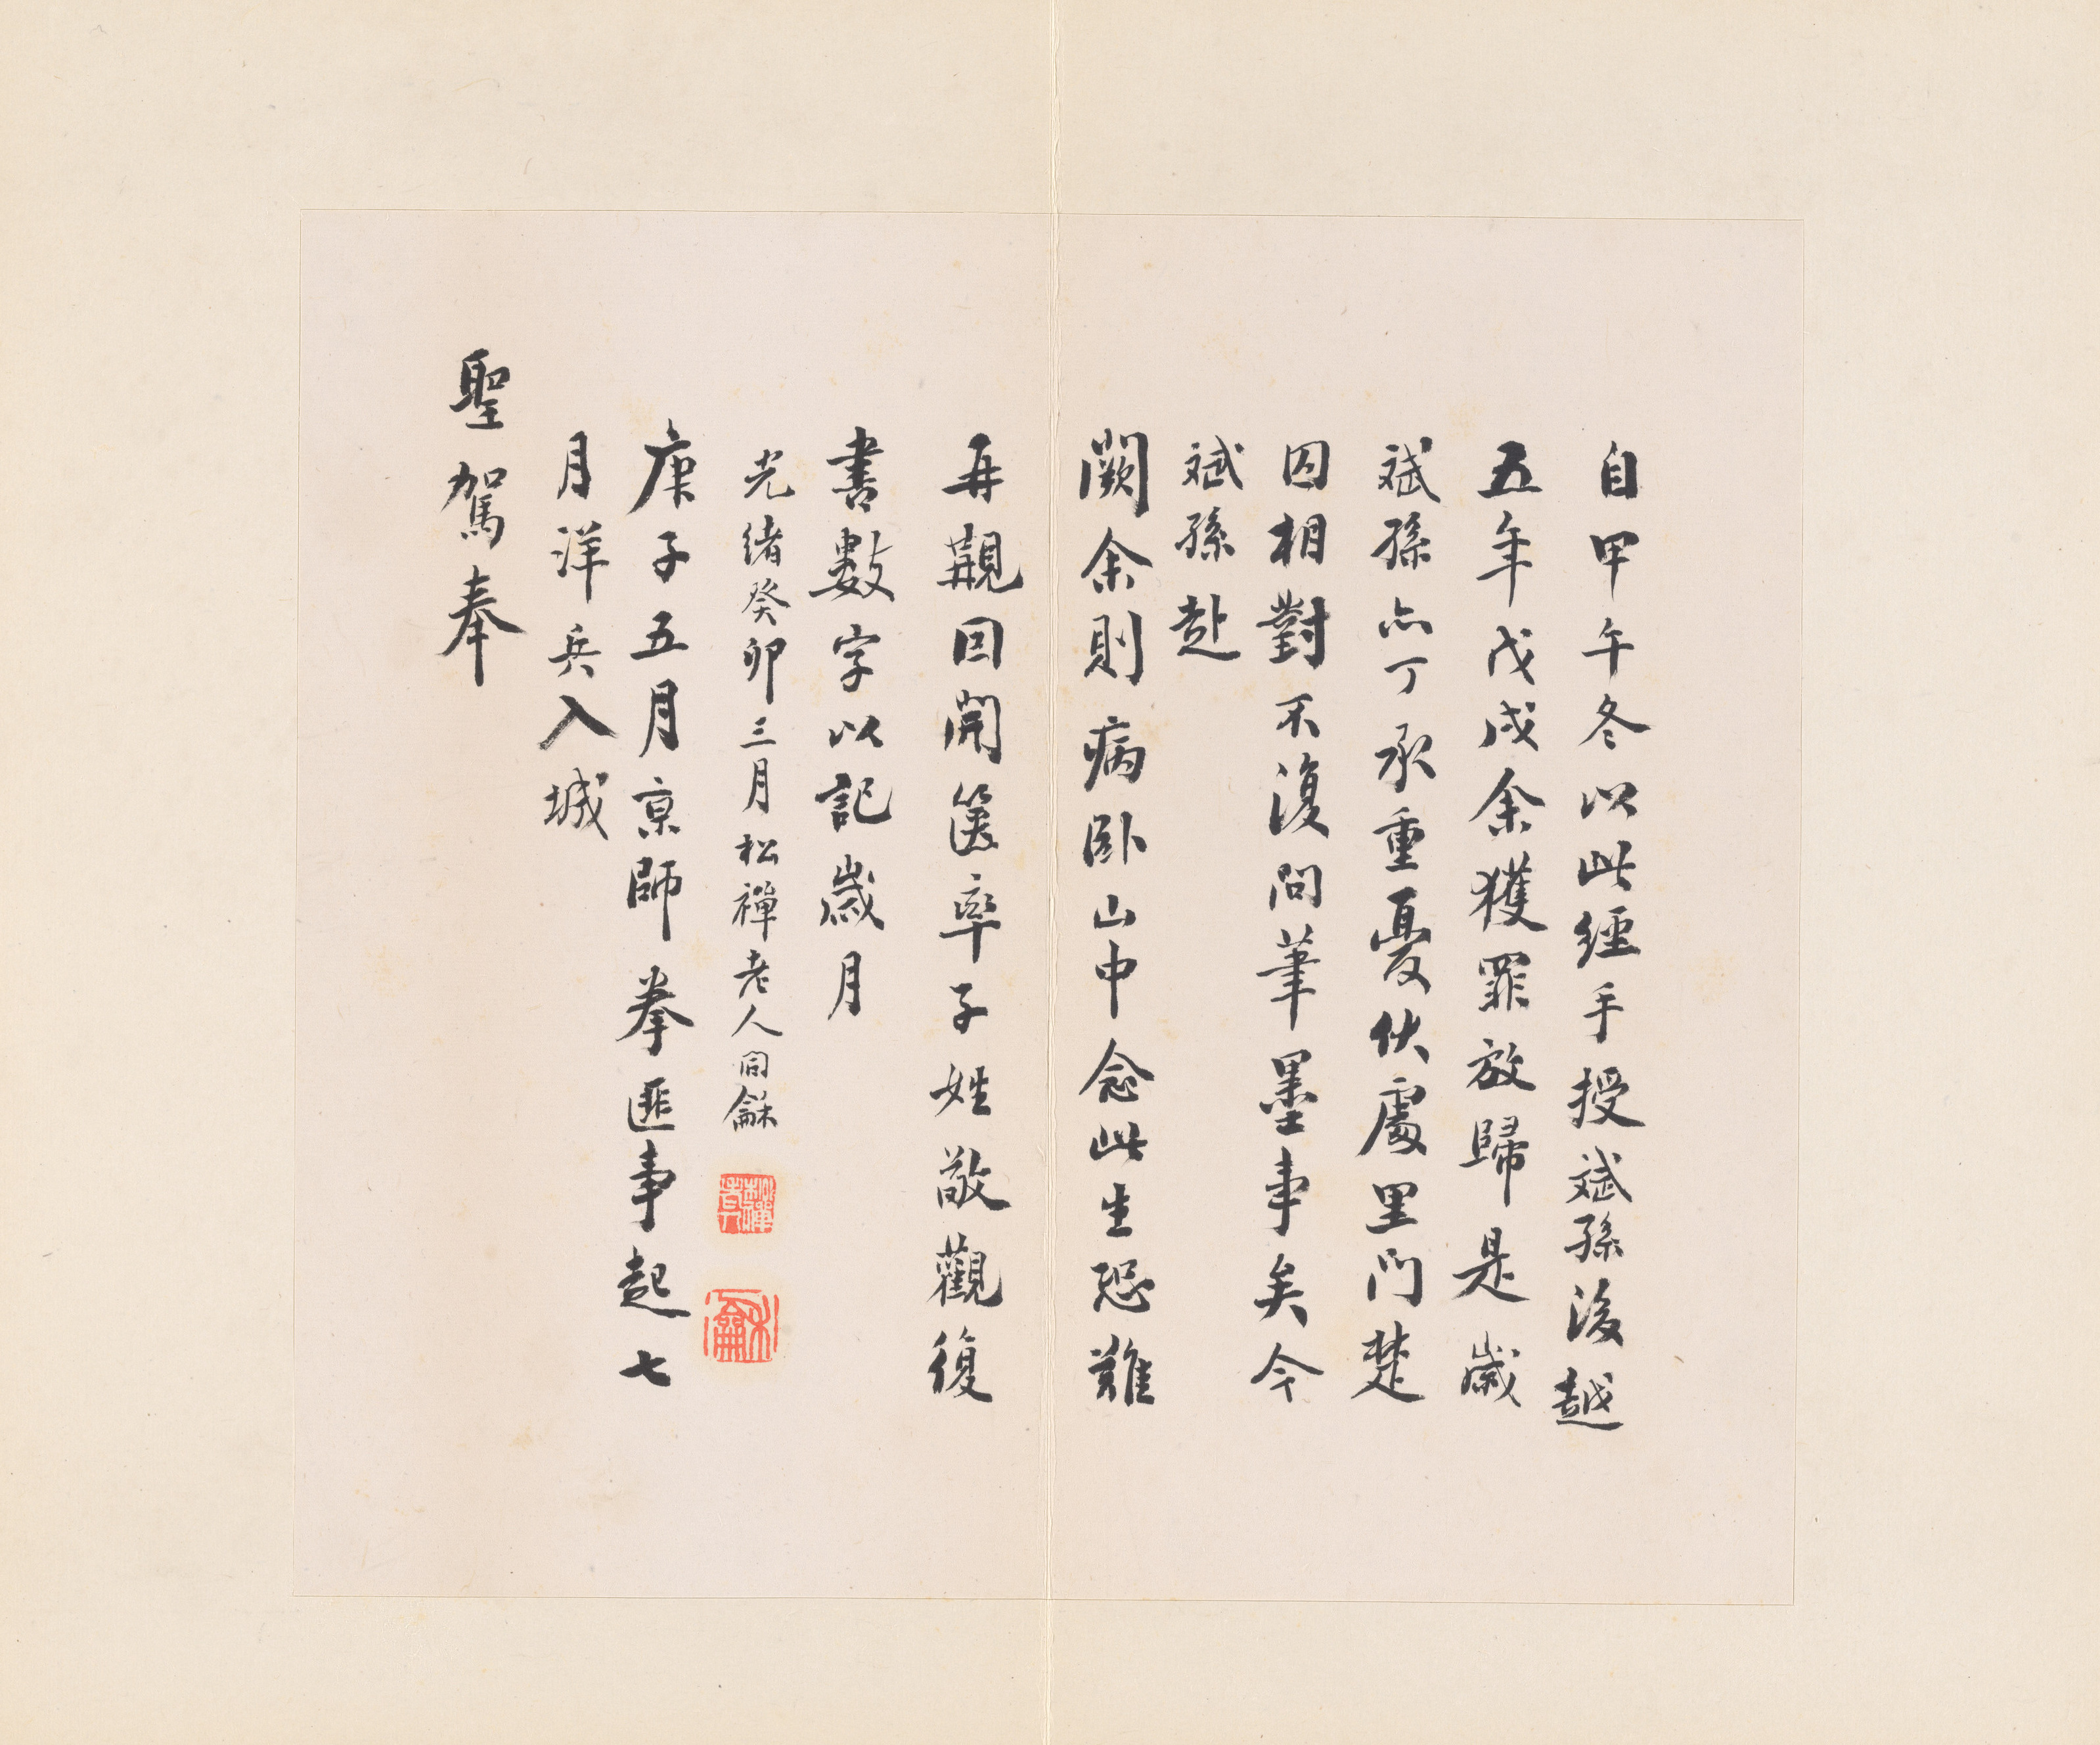 自甲午冬以此經手授斌孫後越
五年戊戌余獲罪放歸是歲
斌孫亦丁承重憂伏處里門楚
囚相對不復問筆墨事矣今
斌孫赴
闕余則病卧山中念此生恐難
再覯因開篋率子姓敬觀復
書數字以記歲月
光緒癸卯三月松禪老人同龢
庚子五月京師拳匪事起七
月洋兵入城
聖駕奉
松禪居士
龢